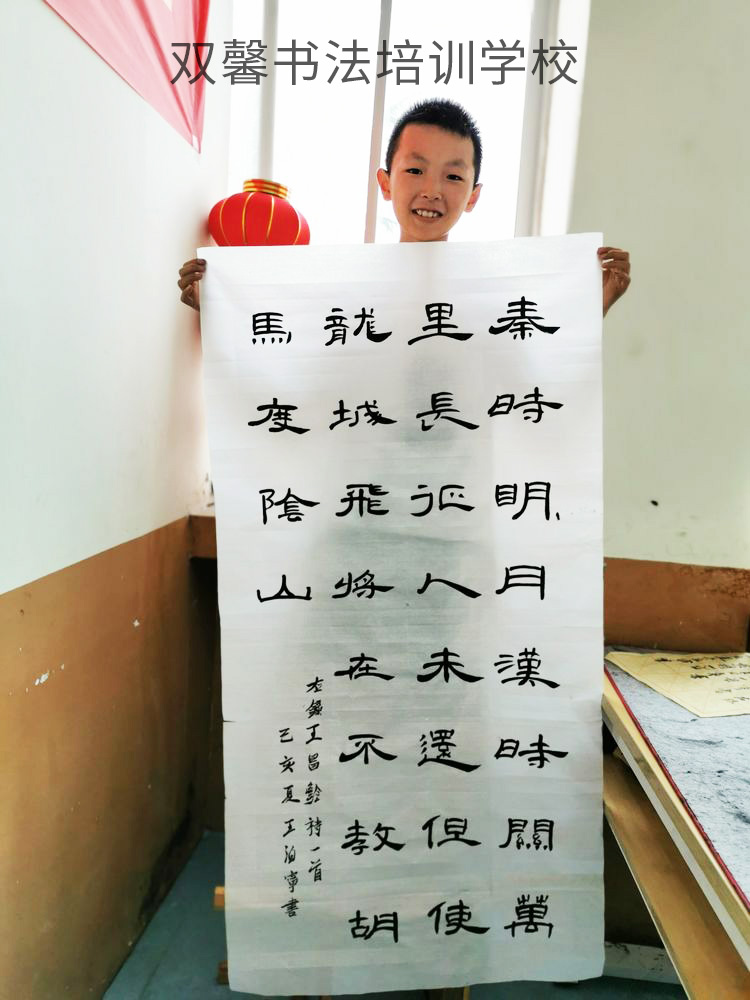 双馨书法培训学校
秦時明月漢時關萬
里長征人未還但使
龍城飛将在不教胡
馬度陰山
左錄王昌齡詩一首
己亥夏王泊寧書